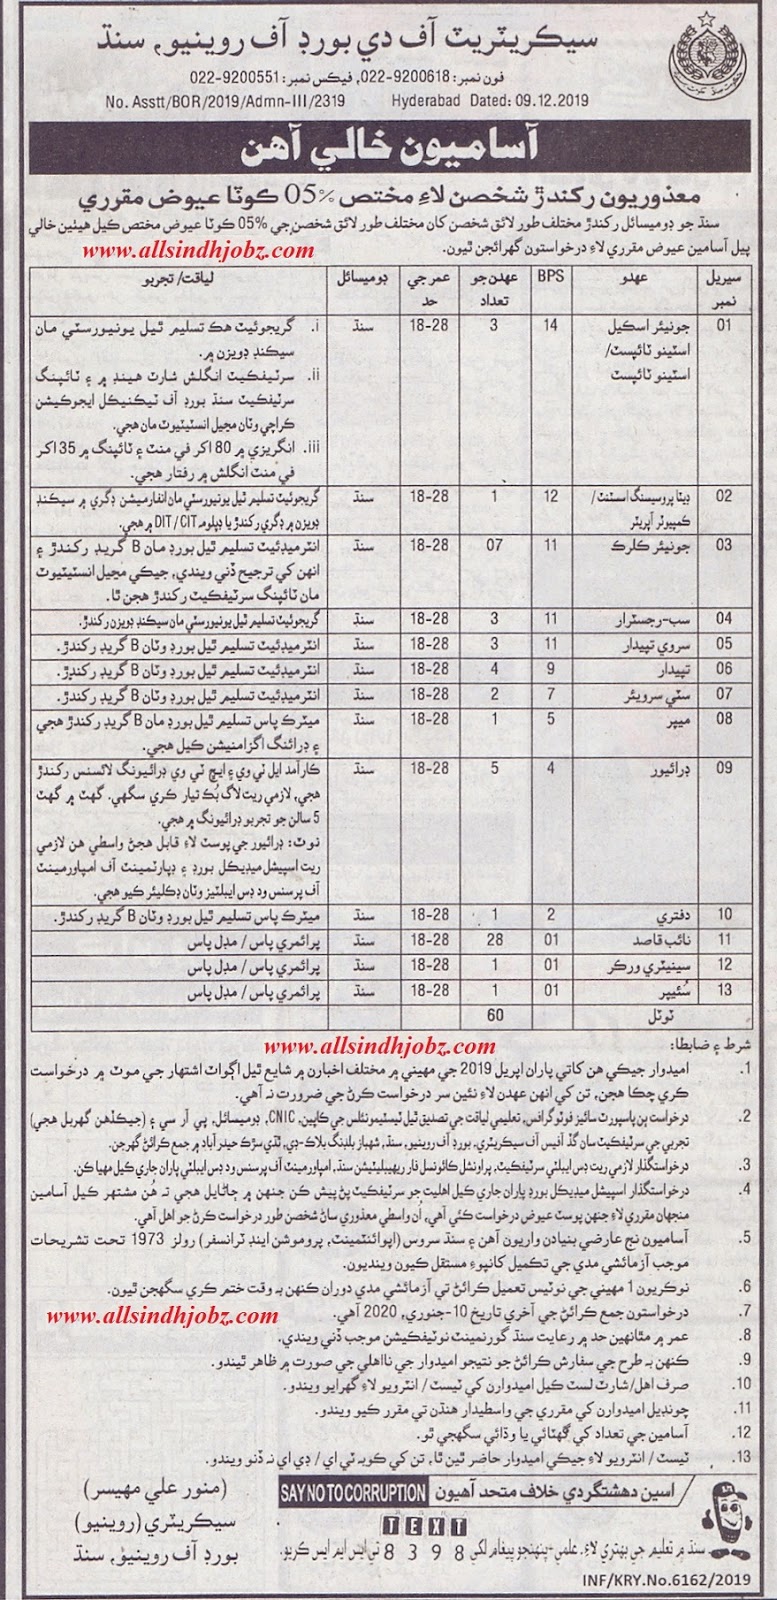 سيڪريٽريٽ آف دي بورڊ آف روينيو، سنڌ
فون نمبر: 022-9200618، فيڪس نمبر: 022-9200551
No. Asstt/BOR/2019/Admn-III/2319 Hyderabad Dated: 09.12.2019
آساميون خالي آهن
معذوريون رکندڙ شخصن لاءِ مختص 05% ڪوٽا عيوض مقرري
سنڌ جو ڊوميسائل رکندڙ مختلف طور لائق شخصن کان مختلف طور لائق شخصن جي 05% ڪوٽا عيوض مختص ڪيل هيٺين خالي
پيل آسامين عيوض مقرري لاءِ درخواستون گهرائجن ٿيون.
www.allsindhjobz.com
سيريل نمبر | عهدو | BPS | عهدن جو تعداد | عمر جي حد | ڊوميسائل | لياقت/ تجربو
01 | جونيئر اسڪيل | 14 | 3 | 18-28 | سنڌ | i. گريجوئيٽ هڪ تسليم ٿيل يونيورسٽي مان
اسٽينو ٽائپسٽ/ | سيڪنڊ ڊويزن ۾.
اسٽينو ٽائپسٽ | ii. سرٽيفڪيٽ انگلش شارٽ هينڊ ۾ ۽ ٽائپنگ
سرٽيفڪيٽ سنڌ بورڊ آف ٽيڪنيڪل ايجوڪيشن
ڪراچي وٽان مڃيل انسٽيٽيوٽ مان هجي.
iii. انگريزي ۾ 80 اکر في منٽ ۽ ٽائپنگ ۾ 35 اکر
في منٽ انگلش ۾ رفتار هجي.
02 | ڊيٽا پروسيسنگ اسسٽنٽ/ | 12 | 1 | 18-28 | سنڌ | گريجوئيٽ تسليم ٿيل يونيورسٽي مان انفارميشن ڊگري ۾ سيڪنڊ
ڪمپيوٽر آپريٽر | ڊويزن ۾ ڊگري رکندڙ يا ڊپلومه DIT / CIT ۾ هجي.
03 | جونيئر ڪلرڪ | 11 | 07 | 18-28 | سنڌ | انٽرميڊئيٽ تسليم ٿيل بورڊ مان B گريڊ رکندڙ ۽
انهن کي ترجيح ڏني ويندي، جيڪي مڃيل انسٽيٽيوٽ
مان ٽائپنگ سرٽيفڪيٽ رکندڙ هجن ٿا.
04 | سب-رجسٽرار | 11 | 3 | 18-28 | سنڌ | گريجوئيٽ تسليم ٿيل يونيورسٽي مان سيڪنڊ ڊويزن رکندڙ.
05 | سروي تپيدار | 11 | 3 | 18-28 | سنڌ | انٽرميڊئيٽ تسليم ٿيل بورڊ وٽان B گريڊ رکندڙ.
06 | تپيدار | 9 | 4 | 18-28 | سنڌ | انٽرميڊئيٽ تسليم ٿيل بورڊ وٽان B گريڊ رکندڙ.
07 | سٽي سرويئر | 7 | 2 | 18-28 | سنڌ | انٽرميڊئيٽ تسليم ٿيل بورڊ وٽان B گريڊ رکندڙ.
08 | ميپر | 5 | 1 | 18-28 | سنڌ | ميٽرڪ پاس تسليم ٿيل بورڊ مان B گريڊ رکندڙ هجي
۽ ڊرائنگ اگزامنيشن ڪيل هجي.
09 | ڊرائيور | 4 | 5 | 18-28 | سنڌ | ڪارآمد ايل ٽي وي ۽ ايڇ ٽي وي ڊرائيونگ لائسنس رکندڙ
هجي، لازمي ريت لاگ بُڪ تيار ڪري سگهي. گهٽ ۾ گهٽ
5 سالن جو تجربو ڊرائيونگ ۾ هجي.
نوٽ: ڊرائيور جي پوسٽ لاءِ قابل هجڻ واسطي هن لازمي
ريت اسپيشل ميڊيڪل بورڊ ۽ ڊپارٽمينٽ آف امپاورمينٽ
آف پرسنس ود ڊس ايبلٽيز وٽان ڊڪليئر ڪيو هجي.
10 | دفتري | 2 | 1 | 18-28 | سنڌ | ميٽرڪ پاس تسليم ٿيل بورڊ وٽان B گريڊ رکندڙ.
11 | نائب قاصد | 01 | 28 | 18-28 | سنڌ | پرائمري پاس / مڊل پاس
12 | سينيٽري ورڪر | 01 | 1 | 18-28 | سنڌ | پرائمري پاس / مڊل پاس
13 | سُئيپر | 01 | 1 | 18-28 | سنڌ | پرائمري پاس / مڊل پاس
ٽوٽل | 60
شرط ۽ ضابطا:
www.allsindhjobz.com
1. اميدوار جيڪي هن کاتي پاران اپريل 2019 جي مهيني ۾ مختلف اخبارن ۾ شايع ٿيل اڳواٽ اشتهار جي موٽ ۾ درخواست
ڪري چڪا هجن، تن کي انهن عهدن لاءِ نئين سر درخواست ڪرڻ جي ضرورت نه آهي.
2. درخواست ٻن پاسپورٽ سائيز فوٽوگرافس، تعليمي لياقت جي تصديق ٿيل ٽيسٽيمونئلس جي ڪاپين، CNIC، ڊوميسائل، پي آر سي ۽ (جيڪڏهن گهربل هجي)
تجربي جي سرٽيفڪيٽ سان گڏ آفيس آف سيڪريٽري، بورڊ آف روينيو، سنڌ، شهباز بلڊنگ بلاڪ-ڊي، ٿڌي سڙڪ حيدرآباد ۾ جمع ڪرائڻ گهرجن.
3. درخواستگذار لازمي ريت ڊس ايبلٽي سرٽيفڪيٽ، پراونشل ڪائونسل فار ريهيبليٽيشن سنڌ، امپاورمينٽ آف پرسنس ود ڊس ايبلٽي پاران جاري ڪيل مهيا ڪن.
4. درخواستگذار اسپيشل ميڊيڪل بورڊ پاران جاري ڪيل اهليت جو سرٽيفڪيٽ پڻ پيش ڪن جنهن ۾ ڄاڻايل هجي ته هُن مشتهر ڪيل آسامين
منجهان مقرري لاءِ جنهن پوسٽ عيوض درخواست ڪئي آهي، ان واسطي معذوري ساڻ شخص طور درخواست ڪرڻ جو اهل آهي.
5. آساميون نج عارضي بنيادن واريون آهن ۽ سنڌ سروس (اپوائنٽمينٽ، پروموشن اينڊ ٽرانسفر) رولز 1973 تحت تشريحات
موجب آزمائشي مدي جي تڪميل کانپوءِ مستقل ڪيون وينديون.
6. نوڪريون 1 مهيني جي نوٽيس تعميل ڪرائڻ تي آزمائشي مدي دوران ڪنهن به وقت ختم ڪري سگهجن ٿيون.
7. درخواستون جمع ڪرائڻ جي آخري تاريخ 10-جنوري، 2020 آهي.
www.allsindhjobz.com
8. عمر ۾ مٿانهين حد ۾ رعايت سنڌ گورنمينٽ نوٽيفڪيشن موجب ڏني ويندي.
9. ڪنهن به طرح جي سفارش ڪرائڻ جو نتيجو اميدوار جي نااهلي جي صورت ۾ ظاهر ٿيندو.
10. صرف اهل/شارٽ لسٽ ڪيل اميدوارن کي ٽيسٽ/ انٽرويو لاءِ گهرايو ويندو.
11. چونڊيل اميدوارن کي مقرري جي واسطيدار هنڌن تي مقرر ڪيو ويندو.
12. آسامين جي تعداد کي گهٽائي يا وڌائي سگهجي ٿو.
13. ٽيسٽ / انٽرويو لاءِ جيڪي اميدوار حاضر ٿين ٿا، تن کي ڪوبه ٽي اي / ڊي اي نه ڏنو ويندو.
(منور علي مهيسر)
سيڪريٽري (روينيو)
بورڊ آف روينيو، سنڌ
اسين دهشتگردي خلاف متحد آهيون SAY NO TO CORRUPTION
TEXT
سنڌ ۾ تعليم جي بهتري لاءِ، علمي-پنهنجو پيغام لکي 8398 تي ايس ايم ايس ڪريو.
INF/KRY.No.6162/2019